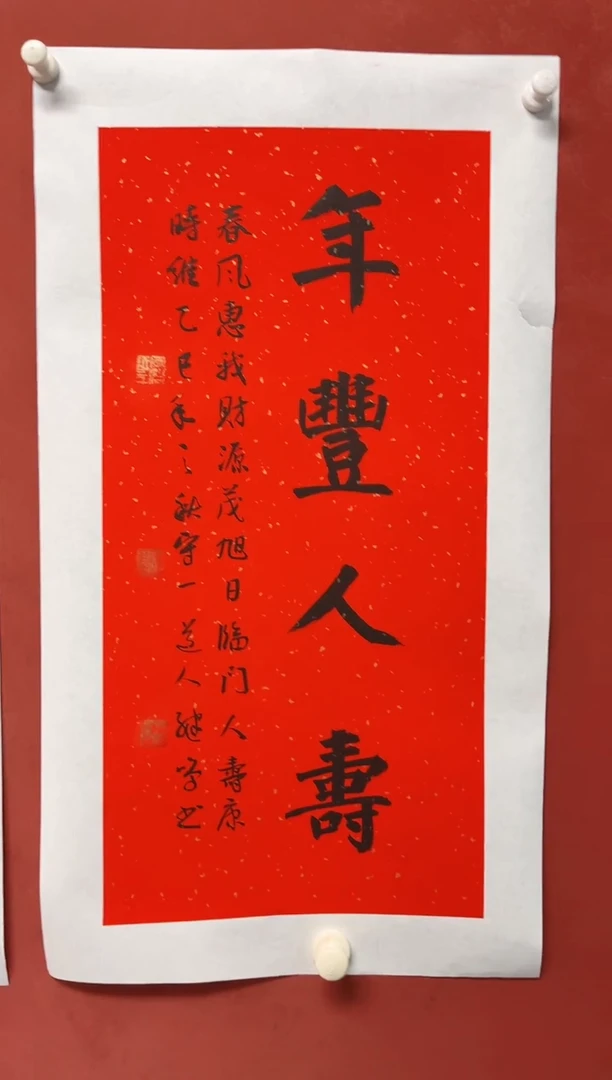 年豐人壽
春风惠我财源茂旭日临门人壽康
時維乙巳年之秋守一道人継学书